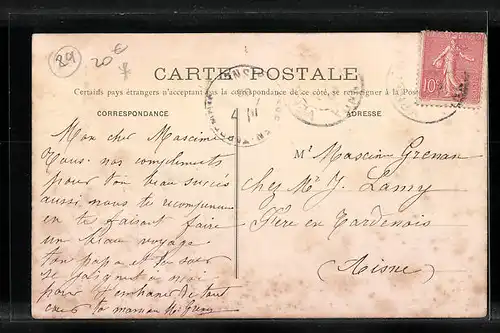 89
20€
CARTE POSTALE
Certains pays étrangers n'acceptant pas la correspondance de ce côté, se renseigner à la Poste
CORRESPONDANCE
ADRESSE
10
Mon cher
Tous nos compliments
pour ton beau succès
aussi nous te récompensons
en te faisant faire
un beau voyage
ton papa et ta sœur
se joignent à moi
pour t'embrasser de tout
cœur ta maman
Mr
chez Mr J. Lamy
Fère en Tardenois
(Aisne)